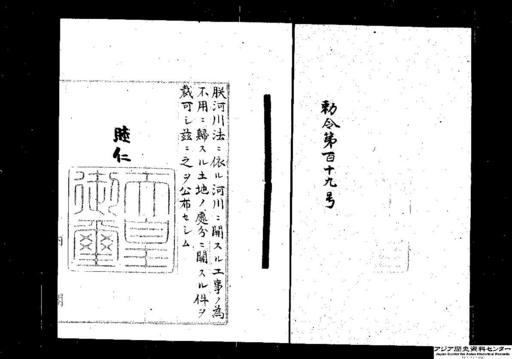 勅令第百十九号
朕河川法ニ依ル河川ニ関スル工事ノ為
不用ニ帰スル土地ノ処分ニ関スル件ヲ
裁可シ茲ニ之ヲ公布セシム
睦仁
天皇
御璽
アジア歴史資料センター
Japan Center for Asian Historical Records